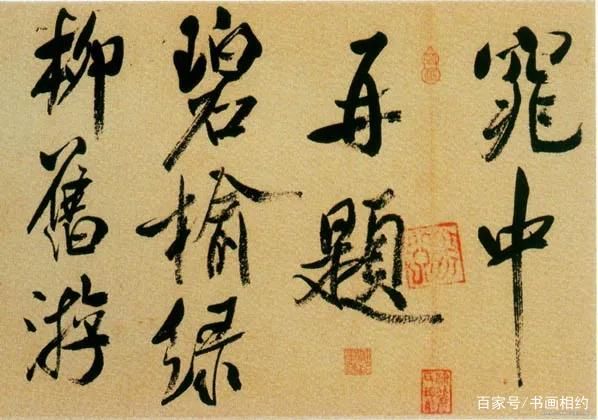 窕中
再題
碧榆綠
柳舊游
百家号/书画相约